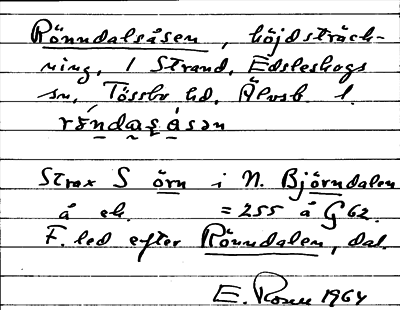 Rönndalsåsen, höjdsträck-
ning, l Strand, Edsleskogs
sn, Tössbo hd, Älvsb. l.
rö́ndaʂà̇sən
Strax S örn i N. Björndalen
å ek. = 255 å G 62.
F. led efter Rönndalen, dal.
E. Rosell 1964